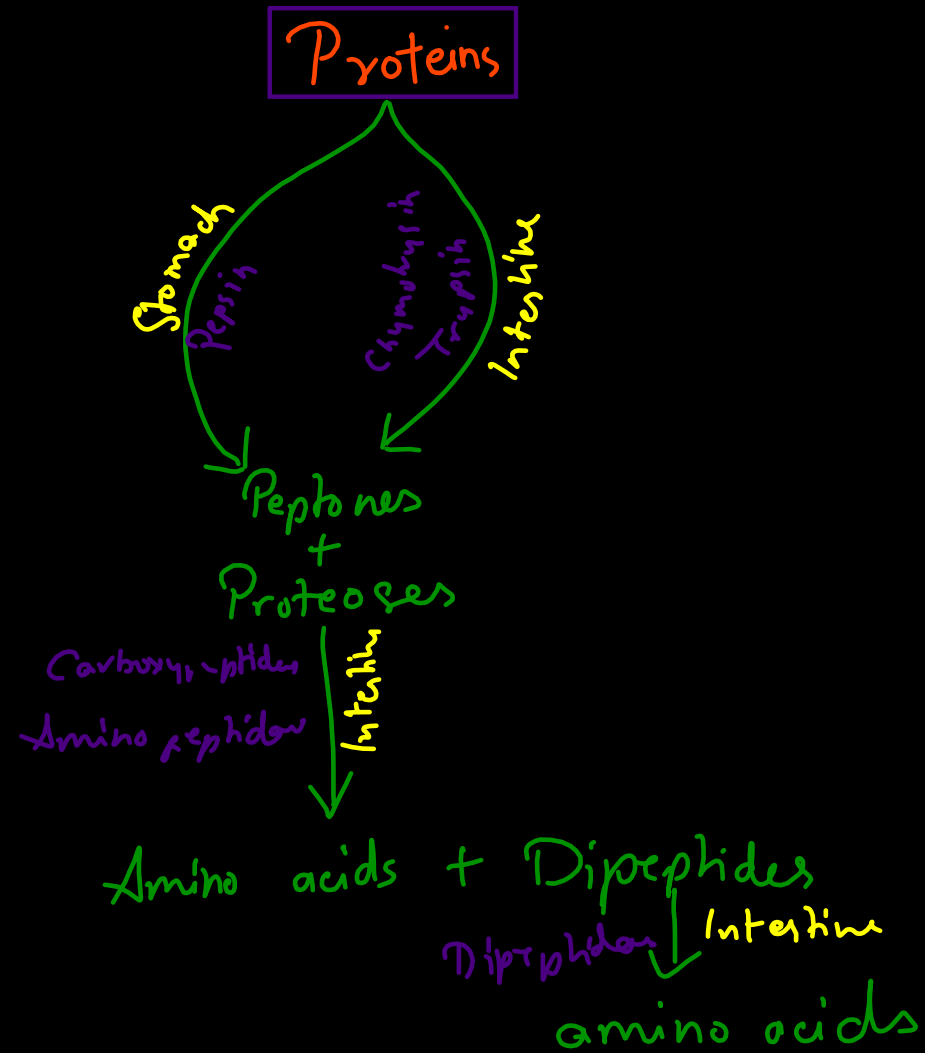 Proteins
Stomach
Pepsin
Chymotrypsin
Trypsin
Intestine
Peptones
+
Proteoses
Carboxypeptidas
Intestine
Amino peptidas
Amino acids + Dipeptides
Dipeptidas
Intestine
amino acids